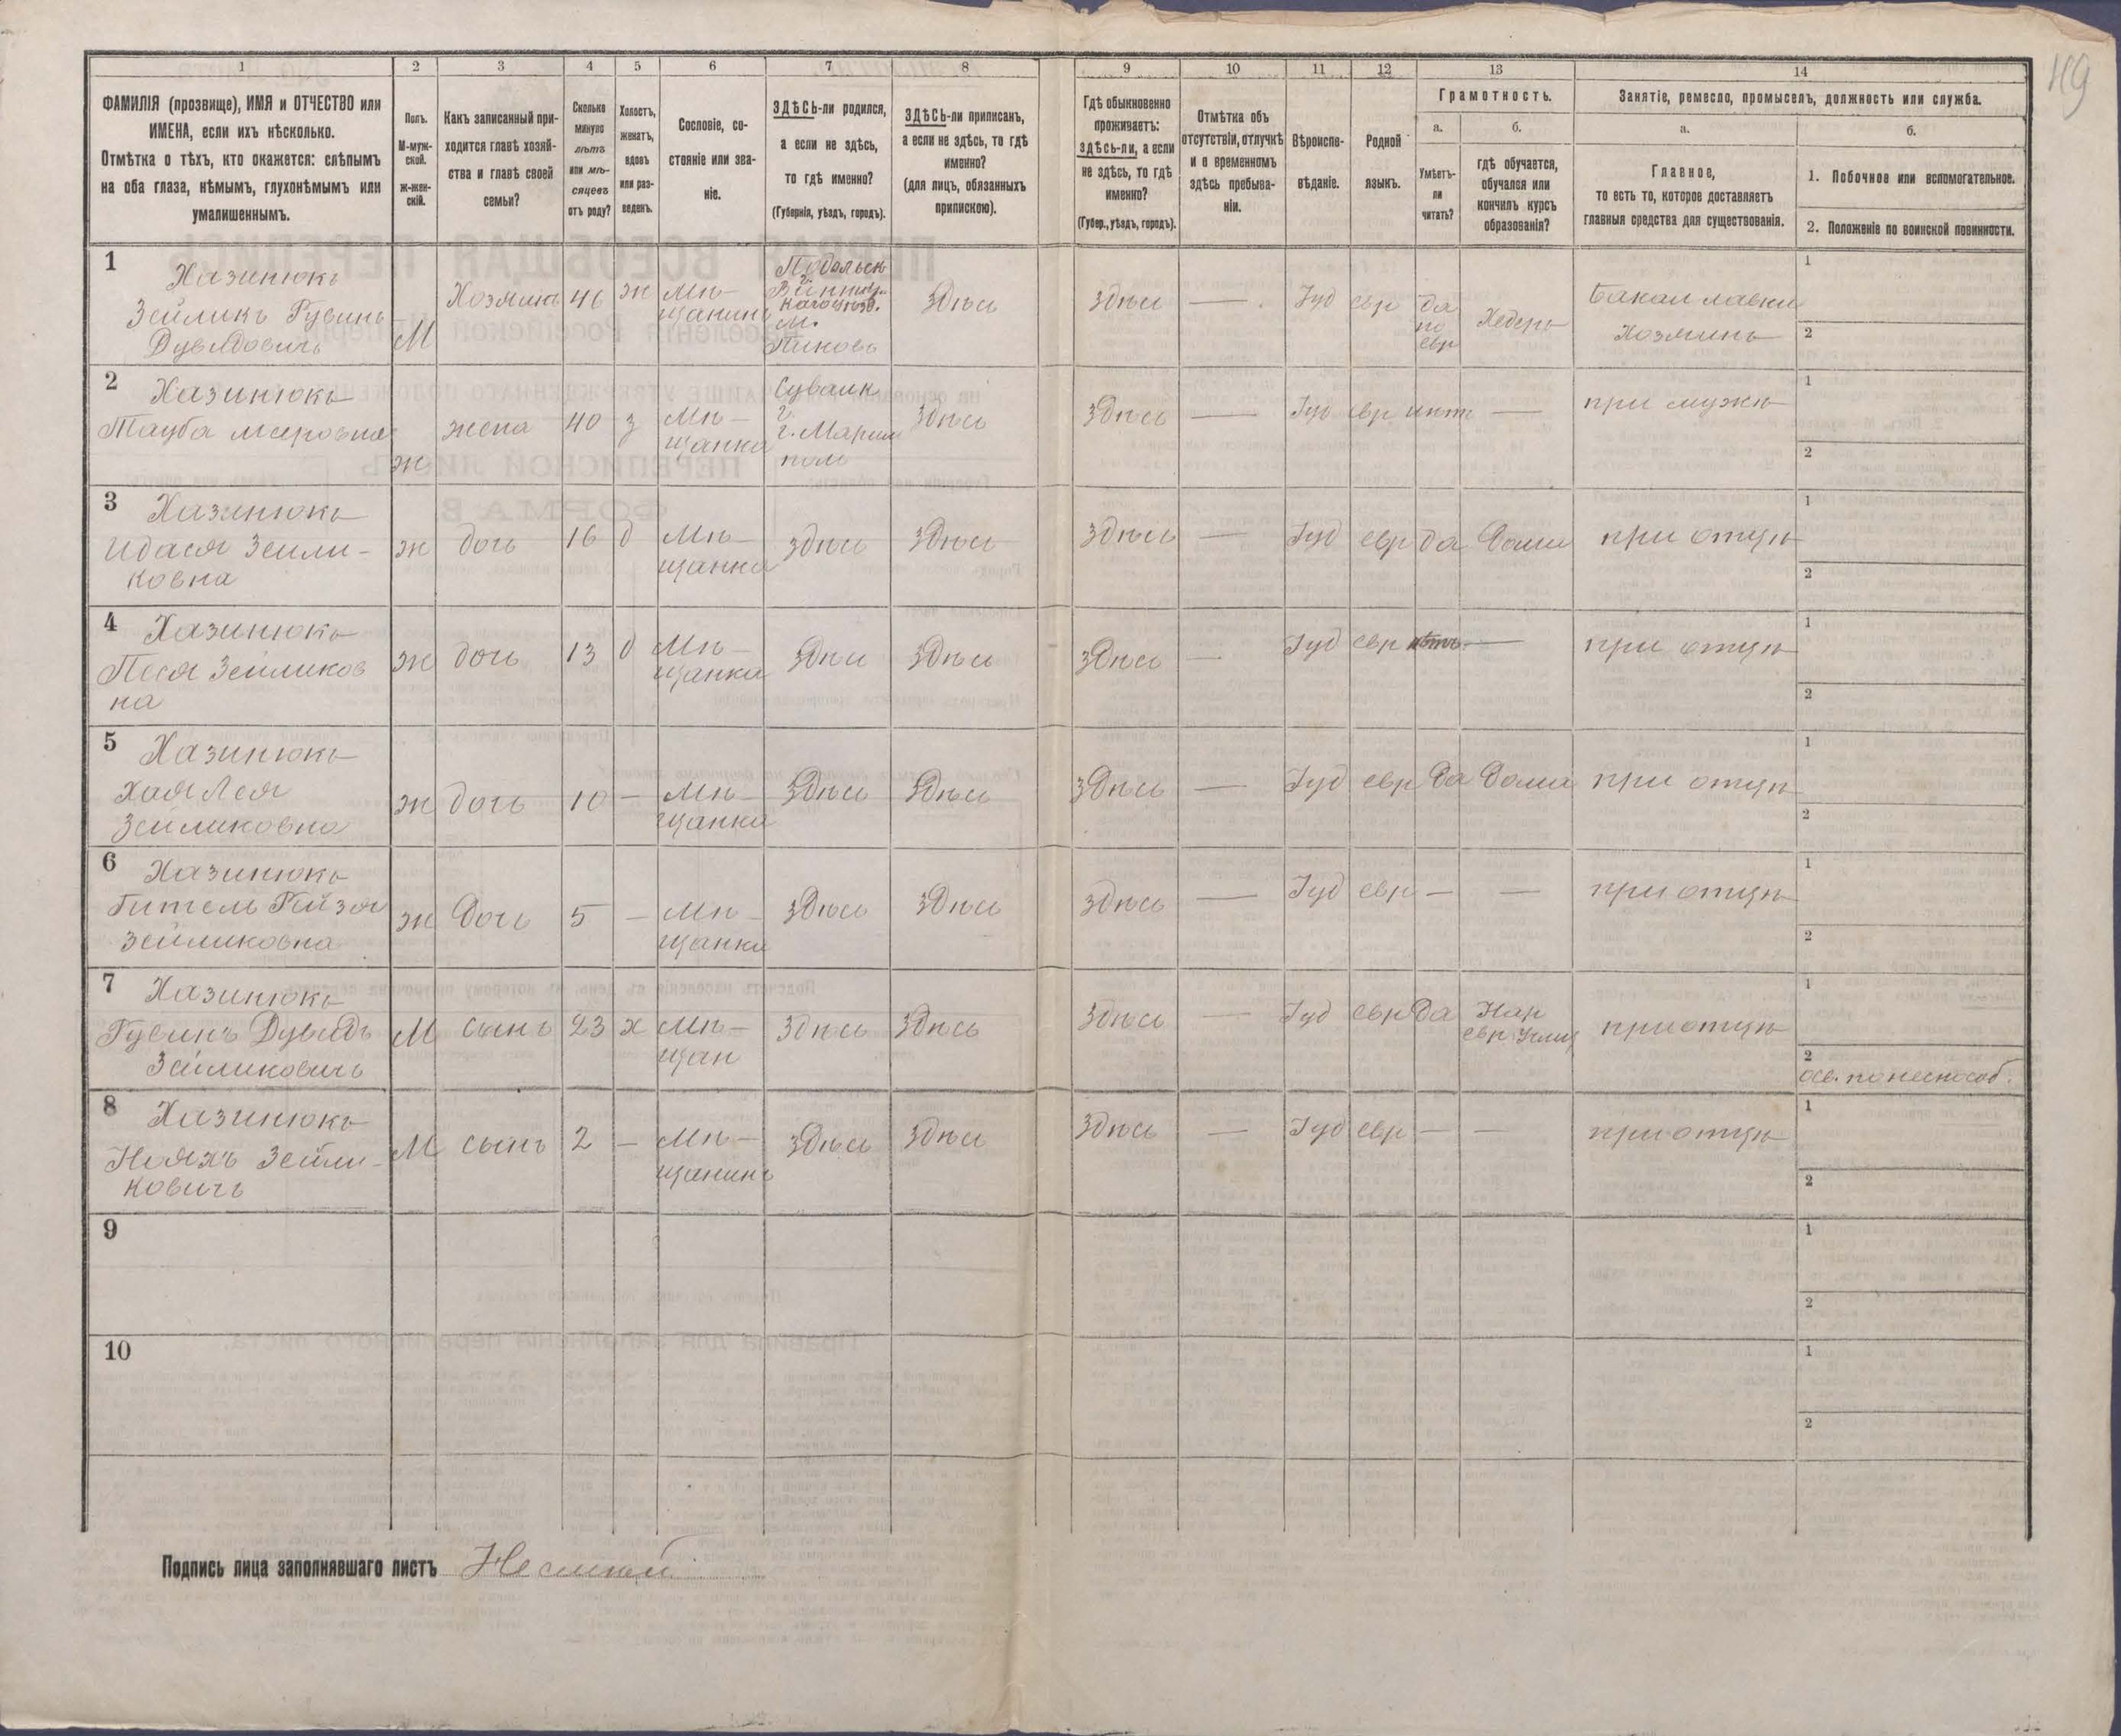 119
1 2 3 4 5 6 7 8 9 10 11 12 13 14
ФАМИЛІЯ (прозвище), ИМЯ и ОТЧЕСТВО или
ИМЕНА, если ихъ нѣсколько.
Отмѣтка о тѣхъ, кто окажется: слѣпымъ
на оба глаза, нѣмымъ, глухонѣмымъ или
умалишеннымъ.
Полъ.
М-муж-
ской.
Ж-жен-
скій.
Какъ записанный при-
ходится главѣ хозяй-
ства и главѣ своей
семьи?
Сколько
минуло
лѣтъ
или мѣ-
сяцевъ
отъ роду?
Холостъ,
женатъ,
вдовъ
или раз-
веденъ.
Сословіе, со-
стояніе или зва-
ніе.
ЗДѢСЬ-ли родился,
а если не здѣсь,
то гдѣ именно?
(Губернія, уѣздъ, городъ).
ЗДѢСЬ-ли приписанъ,
а если не здѣсь, то гдѣ
именно?
(для лицъ, обязанныхъ
припискою).
Гдѣ обыкновенно
проживаетъ:
ЗДѢСЬ-ли, а если
не здѣсь, то гдѣ
именно?
(Губер., уѣздъ, городъ).
Отмѣтка объ
отсутствіи, отлучкѣ
и о временномъ
здѣсь пребыва-
ніи.
Вѣроиспо-
вѣданіе.
Родной
языкъ.
Грамотность.
а.
Умѣетъ-
ли
читать?
б.
гдѣ обучается,
обучался или
кончилъ курсъ
образованія?
Занятіе, ремесло, промыселъ, должность или служба.
а.
Главное,
то есть то, которое доставляетъ
главныя средства для существованія.
б.
1. Побочное или вспомогательное.
2. Положеніе по воинской повинности.
1
Хазинюкъ
Зейликъ Гусинъ
Дувидовичъ
М
Хозяинъ
46
ж
Мѣ-
щанинъ
Подольск
г.
м.
Пиковъ
Здѣсь
Здѣсь
—
Іуд
евр
да
по
евр
Хедеръ
Бакал лавки
Хозяинъ
1
2
2
Хазинюкъ
Тауба Меировна
ж
жена
40
з
Мѣ-
щанка
Сувалк
г.
г. Мариам
поль
Здѣсь
Здѣсь
—
Іуд
евр
нѣтъ
—
при мужѣ
1
2
3
Хазинюкъ
Идася Зейли-
ковна
ж
дочь
16
д
Мѣ-
щанка
здѣсь
Здѣсь
Здѣсь
—
Іуд
евр
да
Дома
при отцѣ
1
2
4
Хазинюкъ
Песя Зейликов
на
ж
дочь
13
д
Мѣ-
щанка
Здѣсь
Здѣсь
Здѣсь
—
Іуд
евр
нѣтъ
—
при отцѣ
1
2
5
Хазинюкъ
Хая Лея
Зейликовна
ж
дочь
10
—
Мѣ-
щанка
Здѣсь
Здѣсь
Здѣсь
—
Іуд
евр
да
Дома
при отцѣ
1
2
6
Хазинюкъ
Гитель Рейзя
Зейликовна
ж
Дочь
5
—
Мѣ-
щанка
Здѣсь
Здѣсь
Здѣсь
—
Іуд
евр
—
—
при отцѣ
1
2
7
Хазинюкъ
Гусинъ Дувидъ
Зейликовичъ
М
сынъ
23
х
Мѣ-
щан
Здѣсь
Здѣсь
Здѣсь
—
Іуд
евр
да
Нар
евр Учил
при отцѣ
1
2
осв. по неспособ.
8
Хазинюкъ
Нояхъ Зейли-
ковичъ
М
сынъ
2
—
Мѣ-
щанинъ
Здѣсь
Здѣсь
Здѣсь
—
Іуд
евр
—
—
при отцѣ
1
2
9
1
2
10
1
2
Подпись лица заполнявшаго листъ